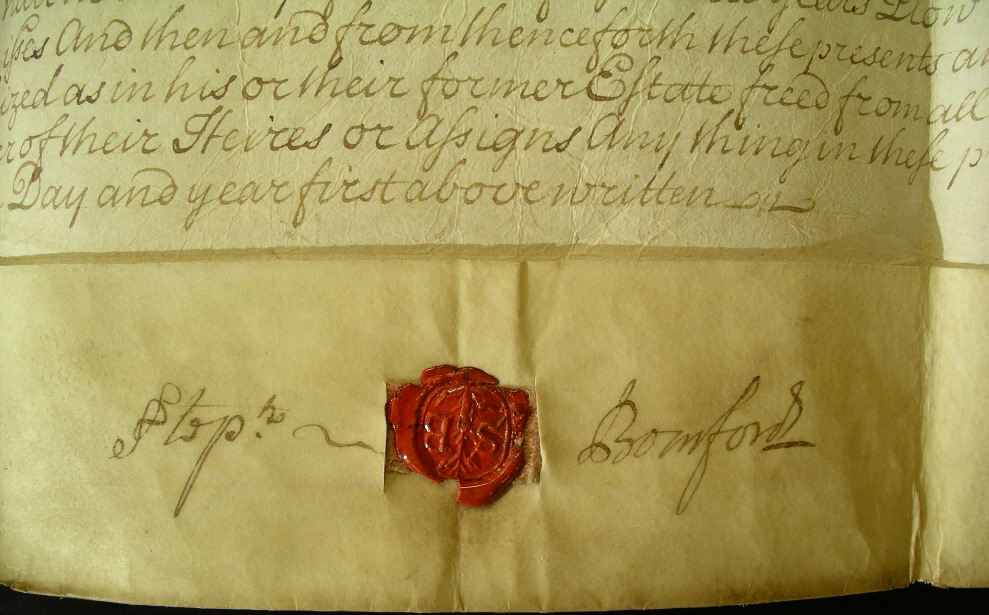 years Plow
ises And then and from thenceforth these presents an
ized as in his or their former Estate freed from all
er of their Heires or Assigns Any thing in these p
Day and year first above written
Steph Bomford